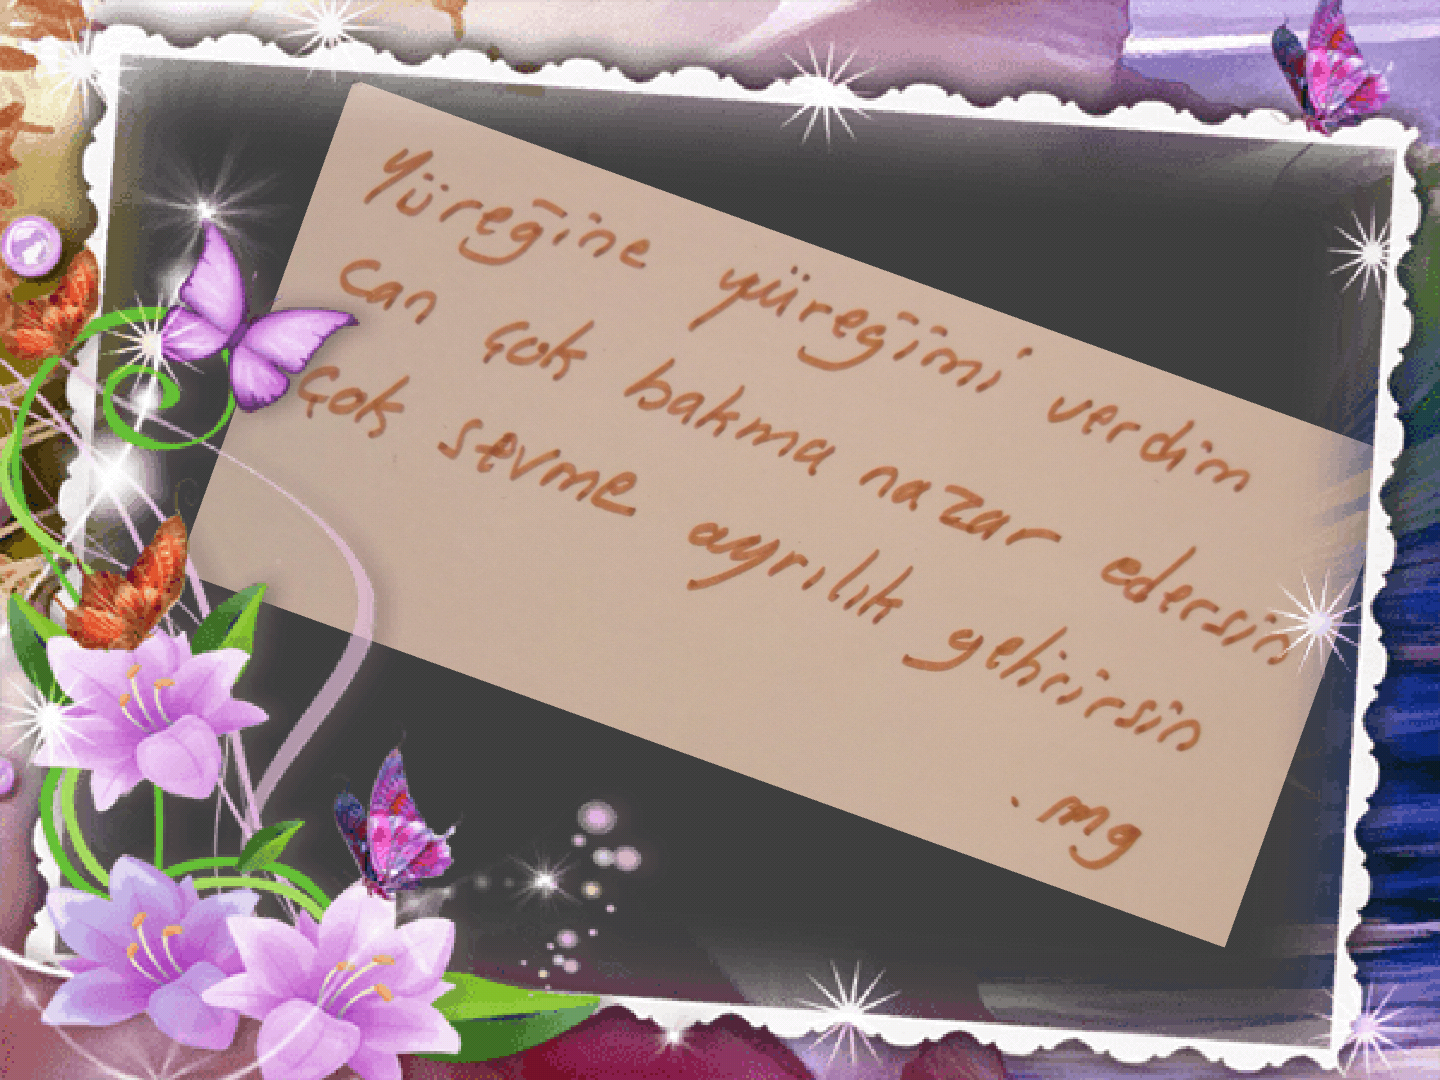 Yüreğine yüreğimi verdim
Can çok bakma nazar edersin
Çok sevme ayrılık getirirsin
. mg